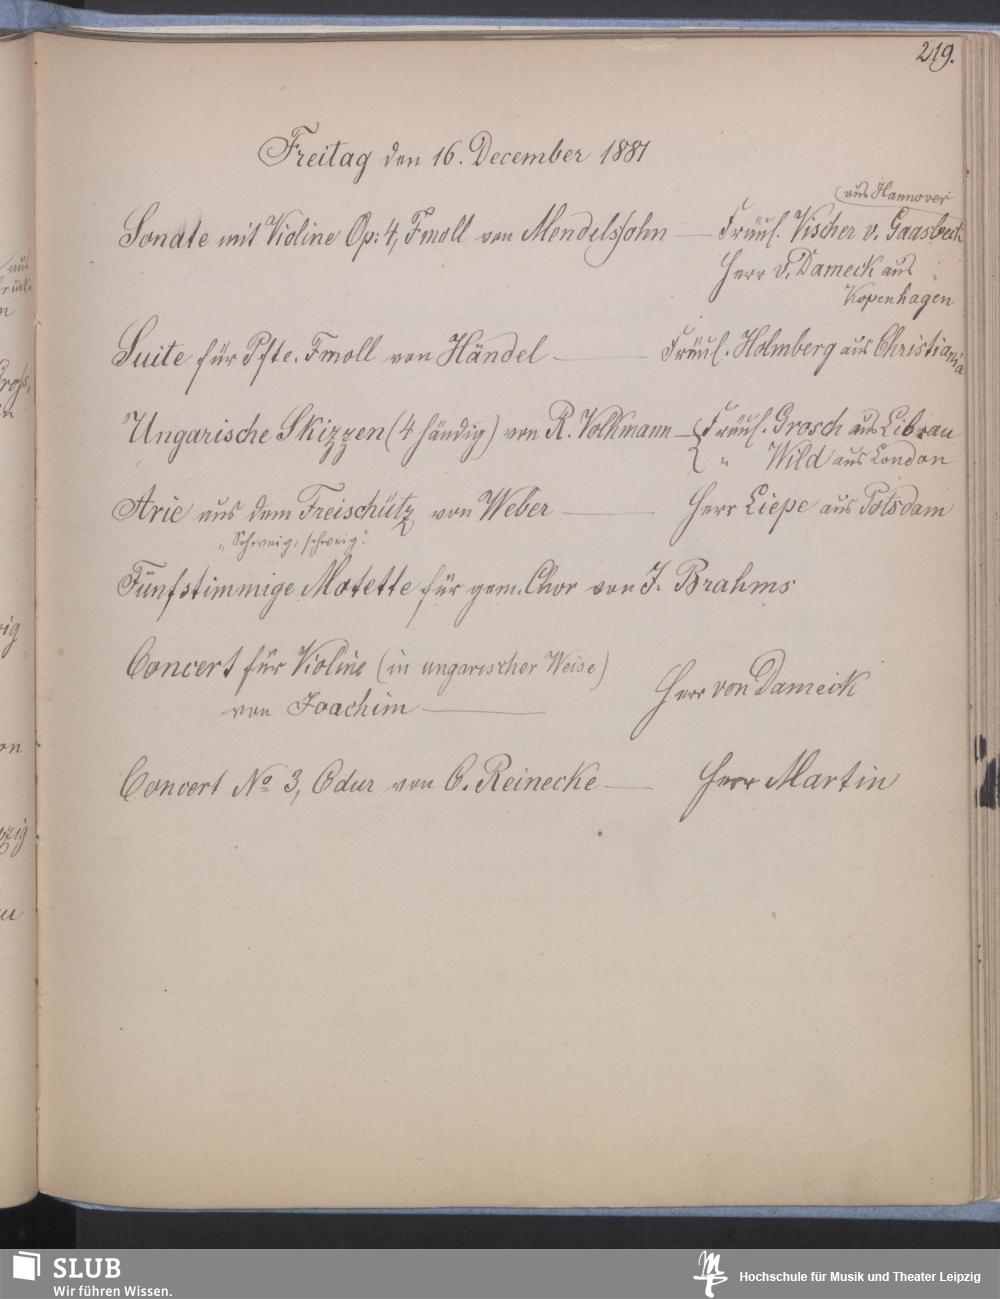 219.
Freitag den 16. December 1881
(aus Hannover
Sonate mit Violine Op: 4, Fmoll von Mendelsſohn — Fräul. Vischer v. Gaasbeek
Herr v. Dameck aus
Kopenhagen
Suite für Pfte. Fmoll von Händel — Fräul. Holmberg aus Christiania
Ungarische Skizzen (4 händig) von R. Volkmann — { Fräul. Grosch aus Librau
" Wild aus London
Arie aus dem Freischütz von Weber — Herr Liepe aus Potsdam
„Schweig, schweig."
Fünfstimmige Motette für gem. Chor von J. Brahms
Concert für Violine (in ungarischer Weise)
von Joachim — Herr von Dameck
Concert No 3, Cdur von C. Reinecke — Herr Martin
SLUB
Wir führen Wissen.
Hochschule für Musik und Theater Leipzig